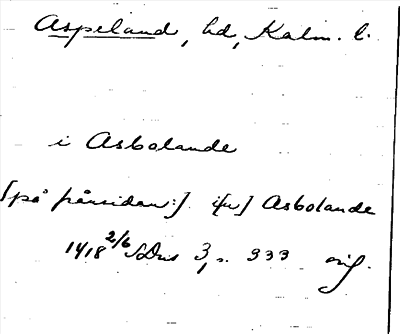 Aspeland, hd, Kalm. l.
i Asbolande
[på frånsidan:] i[u] Asbolande
1418 2/6 SDns 3, s. 333 orig.